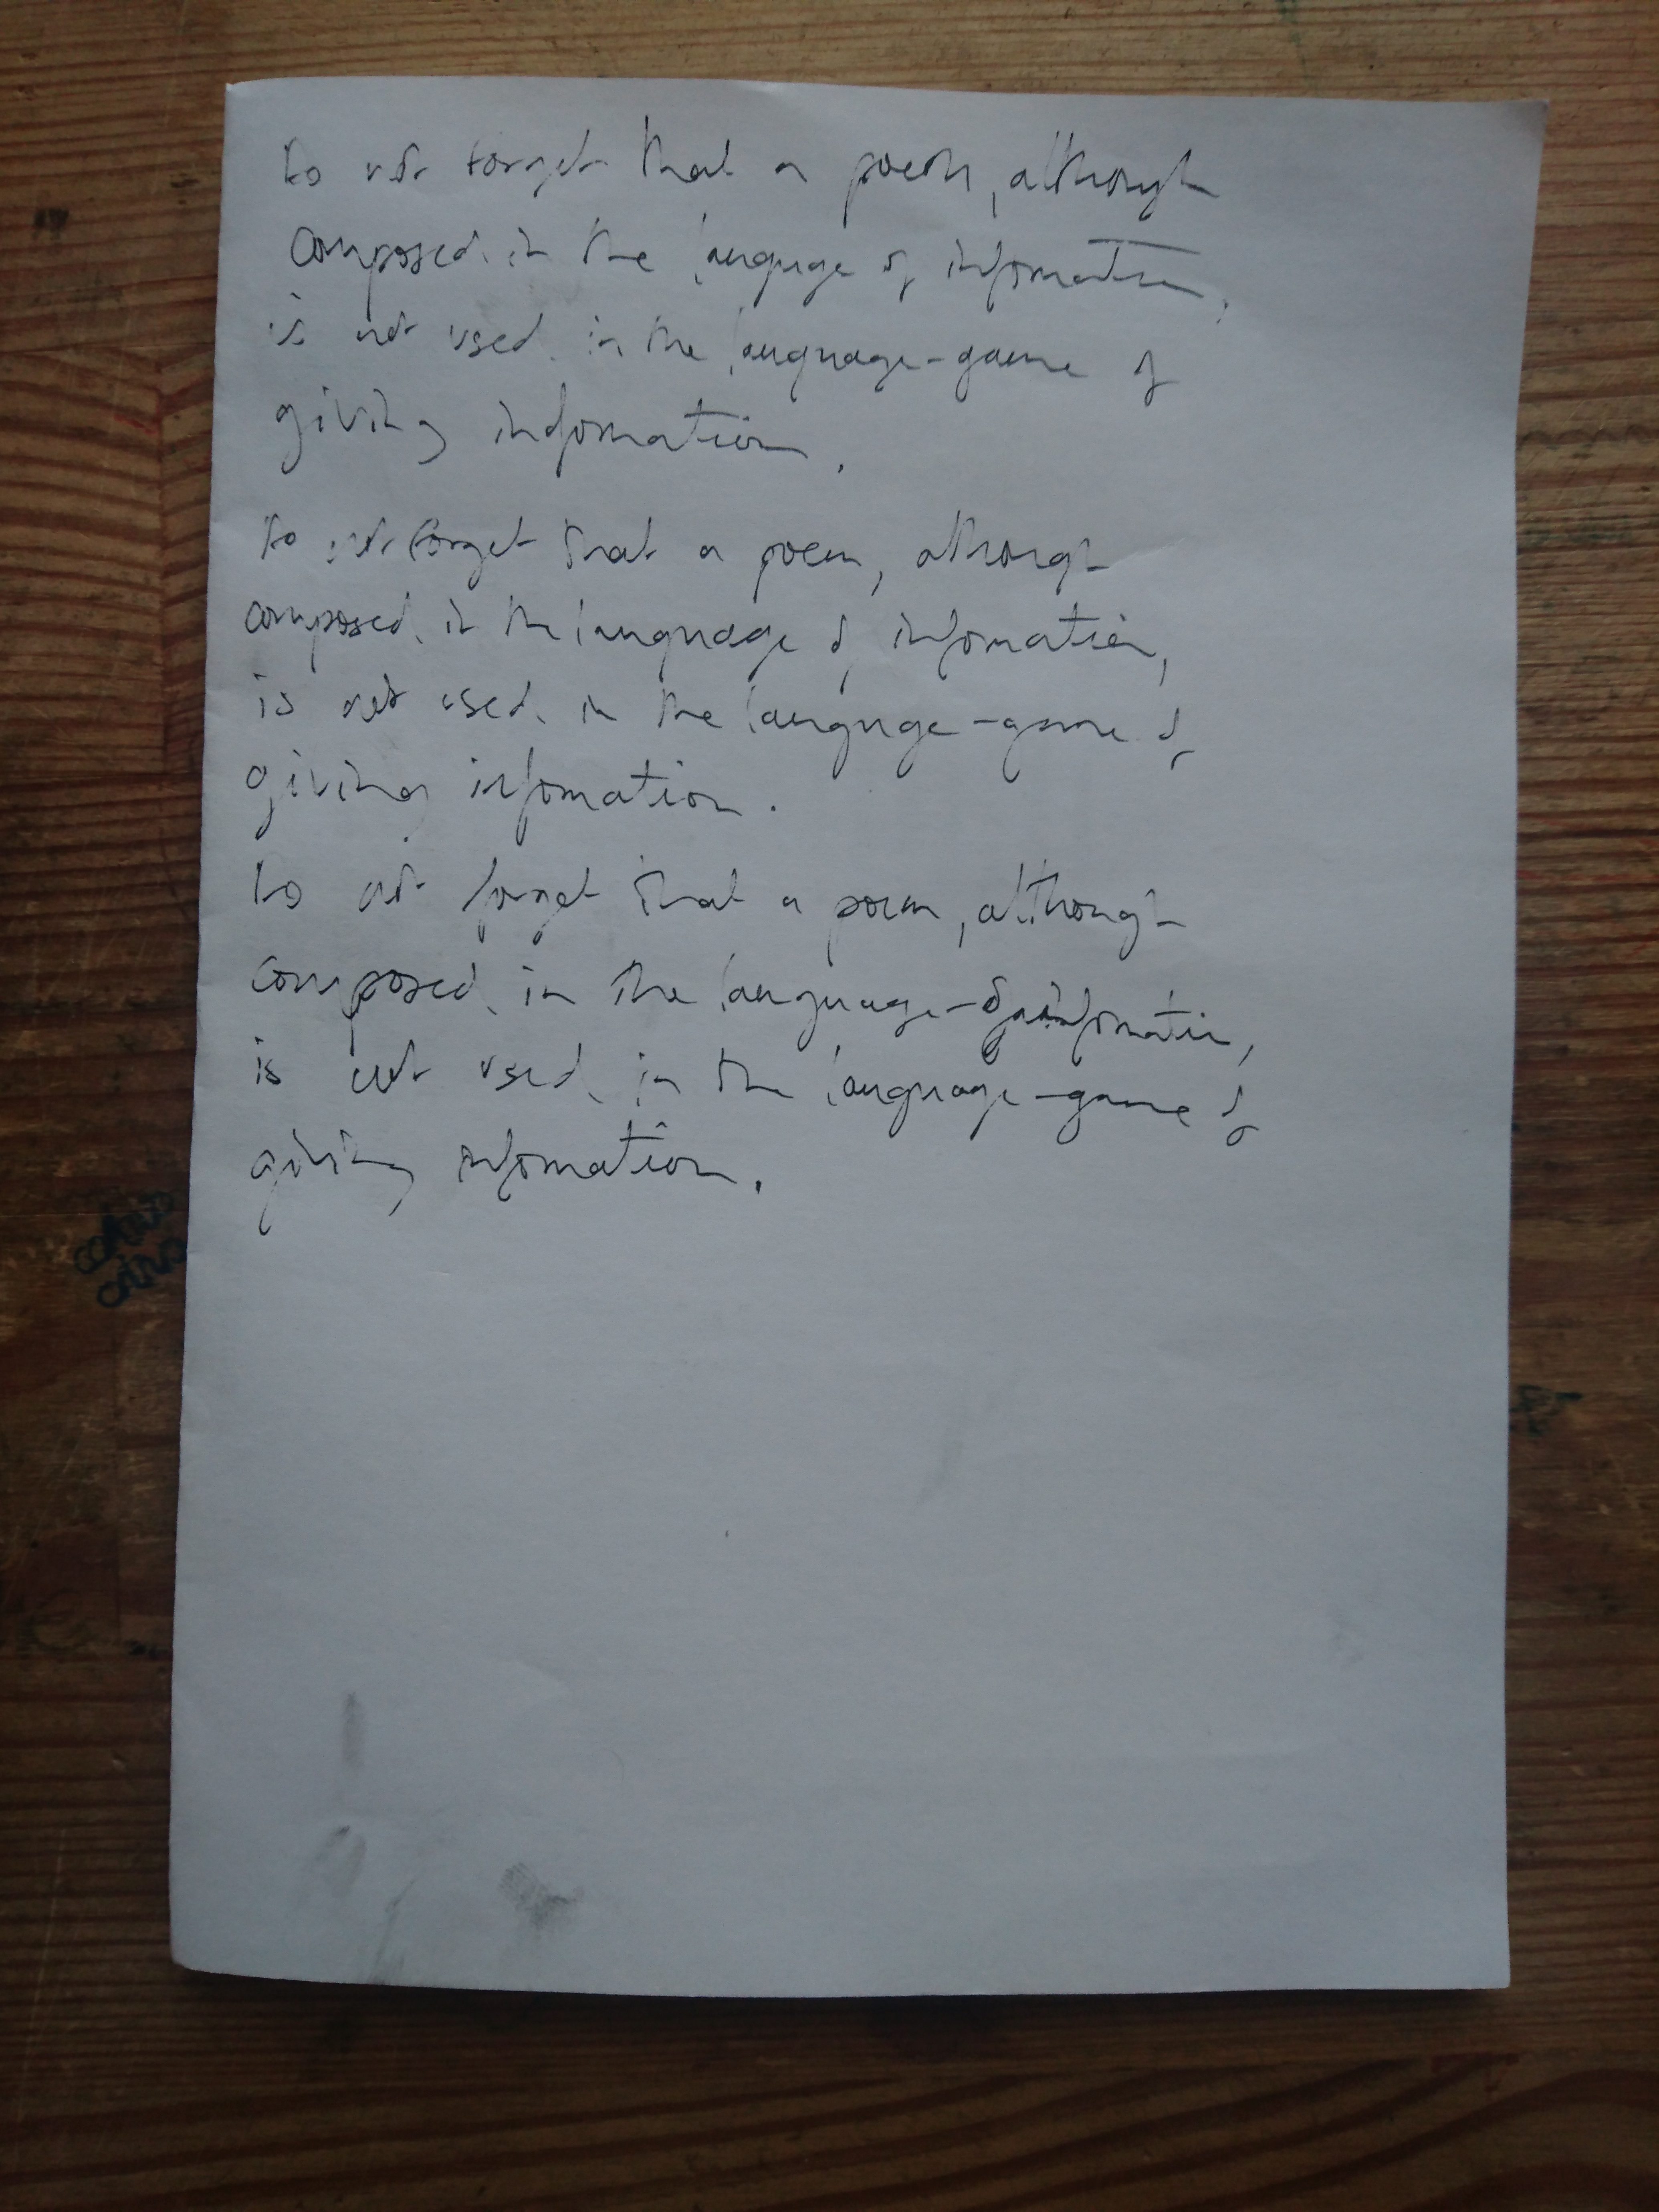 Do not forget that a poem, although
composed in the language of information,
is not used in the language-game of
giving information.
Do not forget that a poem, although
composed in the language of information,
is not used in the language-game of
giving information.
Do not forget that a poem, although
composed in the language of information,
is not used in the language-game of
giving information.